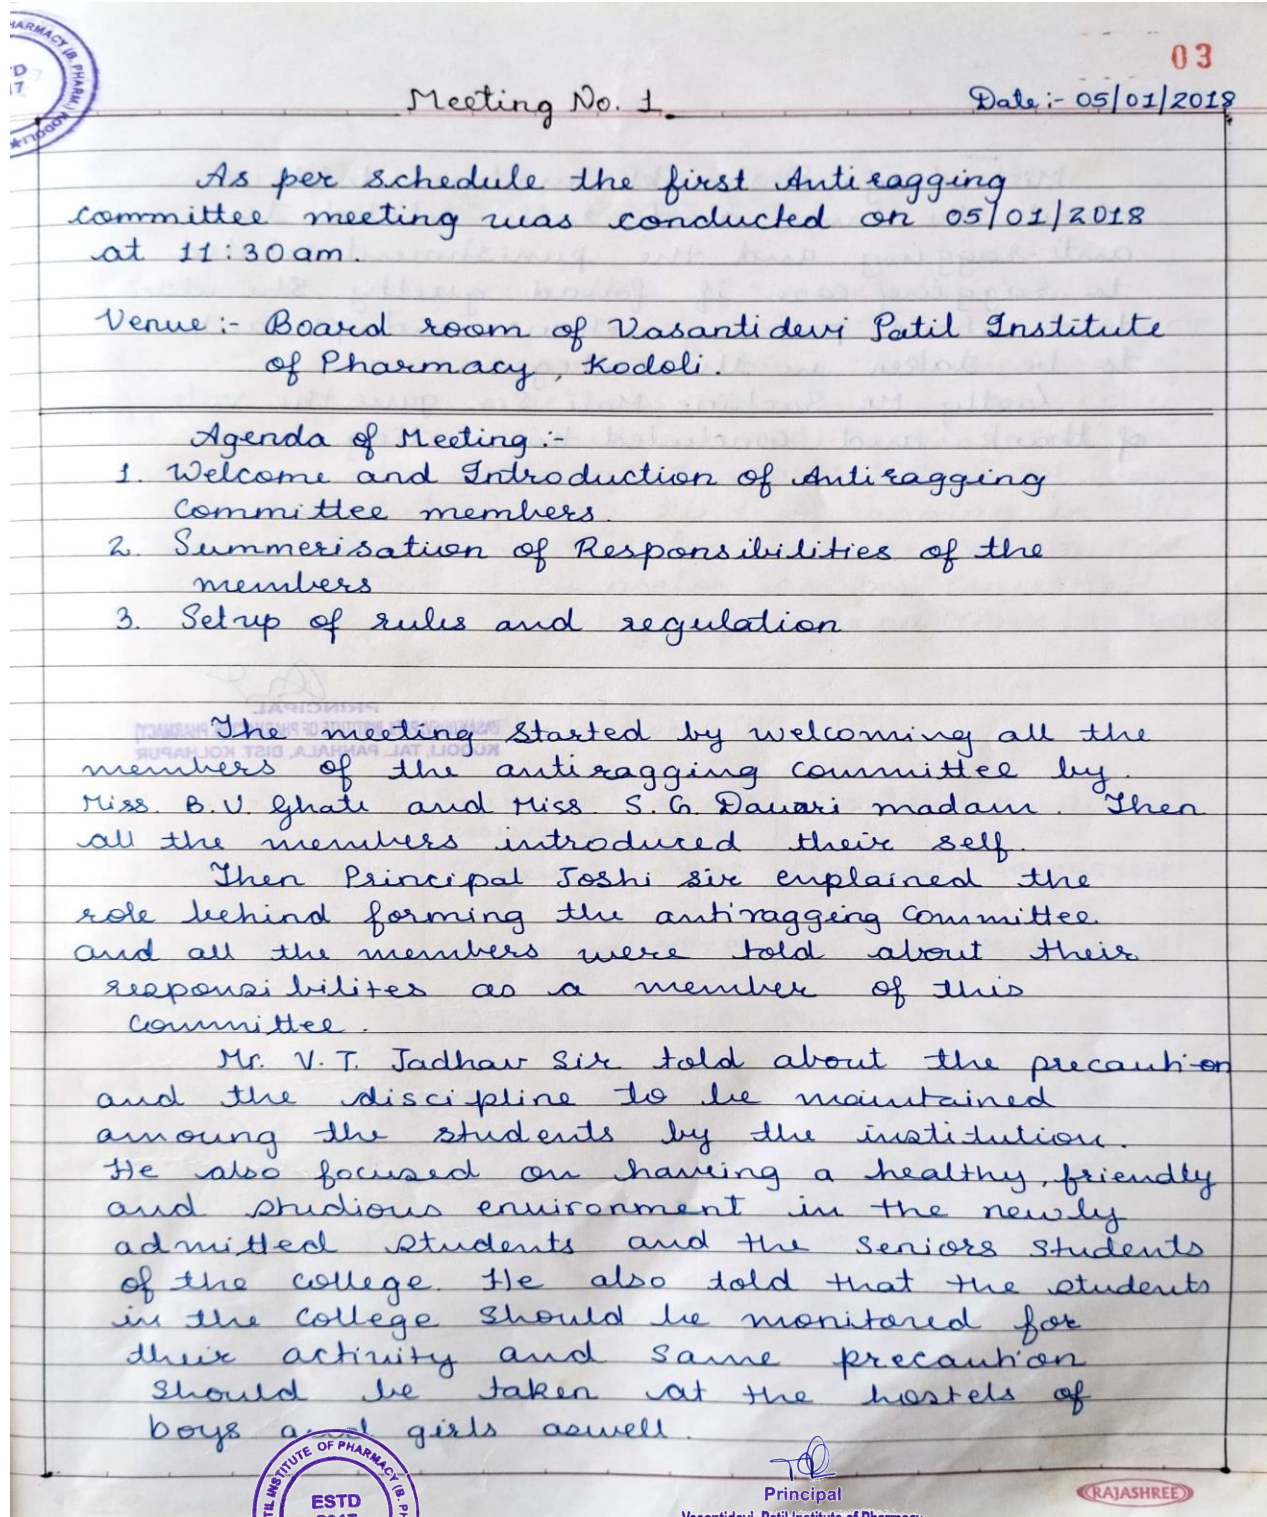 03
Meeting No. 1
Date:- 05/01/2018
As per schedule the first Antiragging
committee meeting was conducted on 05/01/2018
at 11:30am.
Venue:- Board room of Vasantidevi Patil Institute
of Pharmacy, Kodoli.
Agenda of Meeting:-
1. Welcome and Introduction of Antiragging
Committee members.
2. Summerisation of Responsibilities of the
members
3. Setup of rules and regulation
The meeting started by welcoming all the
members of the antiragging committee by.
Miss. B.V. Ghate and Miss. S.G. Dawari madam. Then
all the members introduced their self.
Then Principal Joshi sir enplained the
role behind forming the antiragging committee
and all the members were told about their
responsibilites as a member of this
Committee.
Mr. V.T. Jadhav Sir told about the precaution
and the discipline to be maintained
amoung the students by the institution.
He also focused on having a healthy, friendly
and studious environment in the newly
admitted students and the Seniors students
of the college. He also told that the students
in the college should be monitored for
their activity and same precaution
should be taken at the hostels of
boys and girls aswell.
INSTITUTE OF PHARMACY (B. PH
ESTD
2017
Principal
Vasantidevi Patil Institute of Pharmacy
RAJASHREE
PHARMACY (B. PHARM.) KODOLI